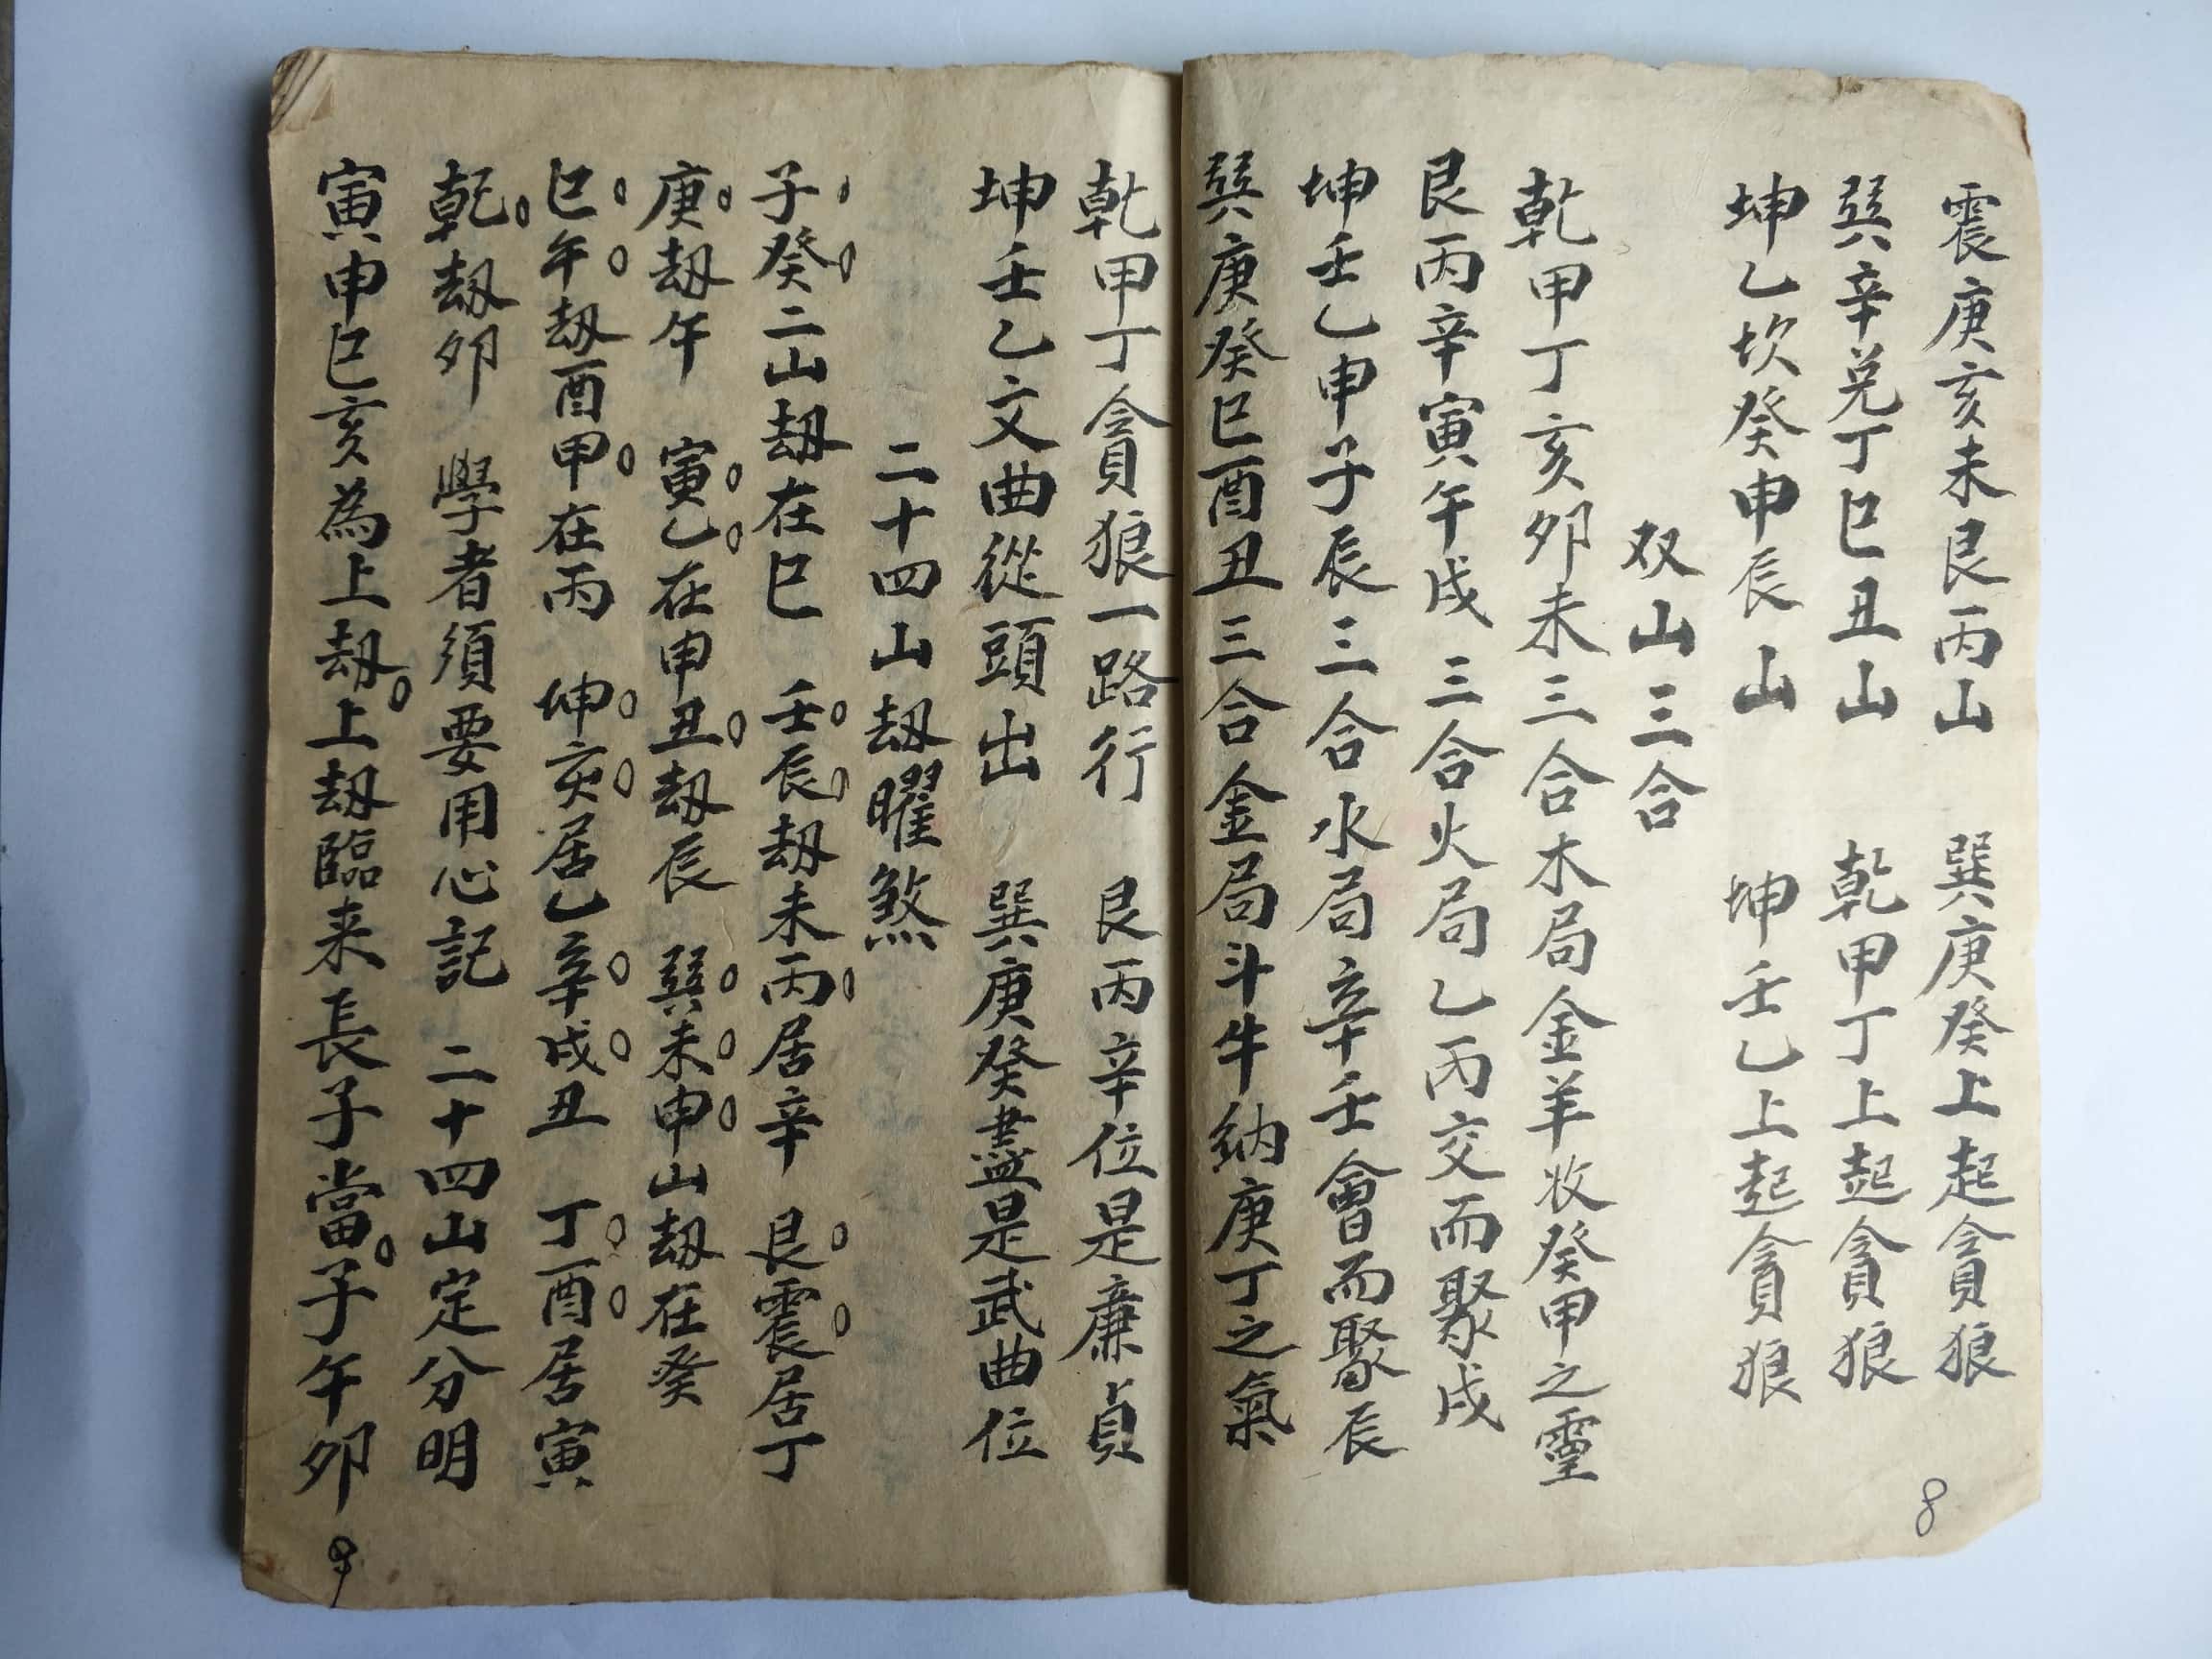 震庚亥未艮丙山　巽庚癸上起貪狼
巽辛兑丁巳丑山　乾甲丁上起貪狼
坤乙坎癸申辰山　坤壬乙上起貪狼
双山三合
乾甲丁亥卯未三合木局金羊收癸甲之靈
艮丙辛寅午戌三合火局乙丙交而聚戌
坤壬乙申子辰三合水局辛壬會而聚辰
巽庚癸巳酉丑三合金局斗牛納庚丁之氣
8
乾甲丁貪狼一路行　艮丙辛位是廉貞
坤壬乙文曲從頭出　巽庚癸盡是武曲位
二十四山刼曜煞
子癸二山刼在巳　壬辰刼未丙居辛　艮震居丁
庚刼午　寅乙在申丑刼辰　巽未申山刼在癸
巳午刼酉甲在丙　坤亥居乙辛戌丑　丁酉居寅
乾刼卯　學者須要用心記　二十四山定分明
寅申巳亥為上刼。上刼臨来長子當。子午卯
9